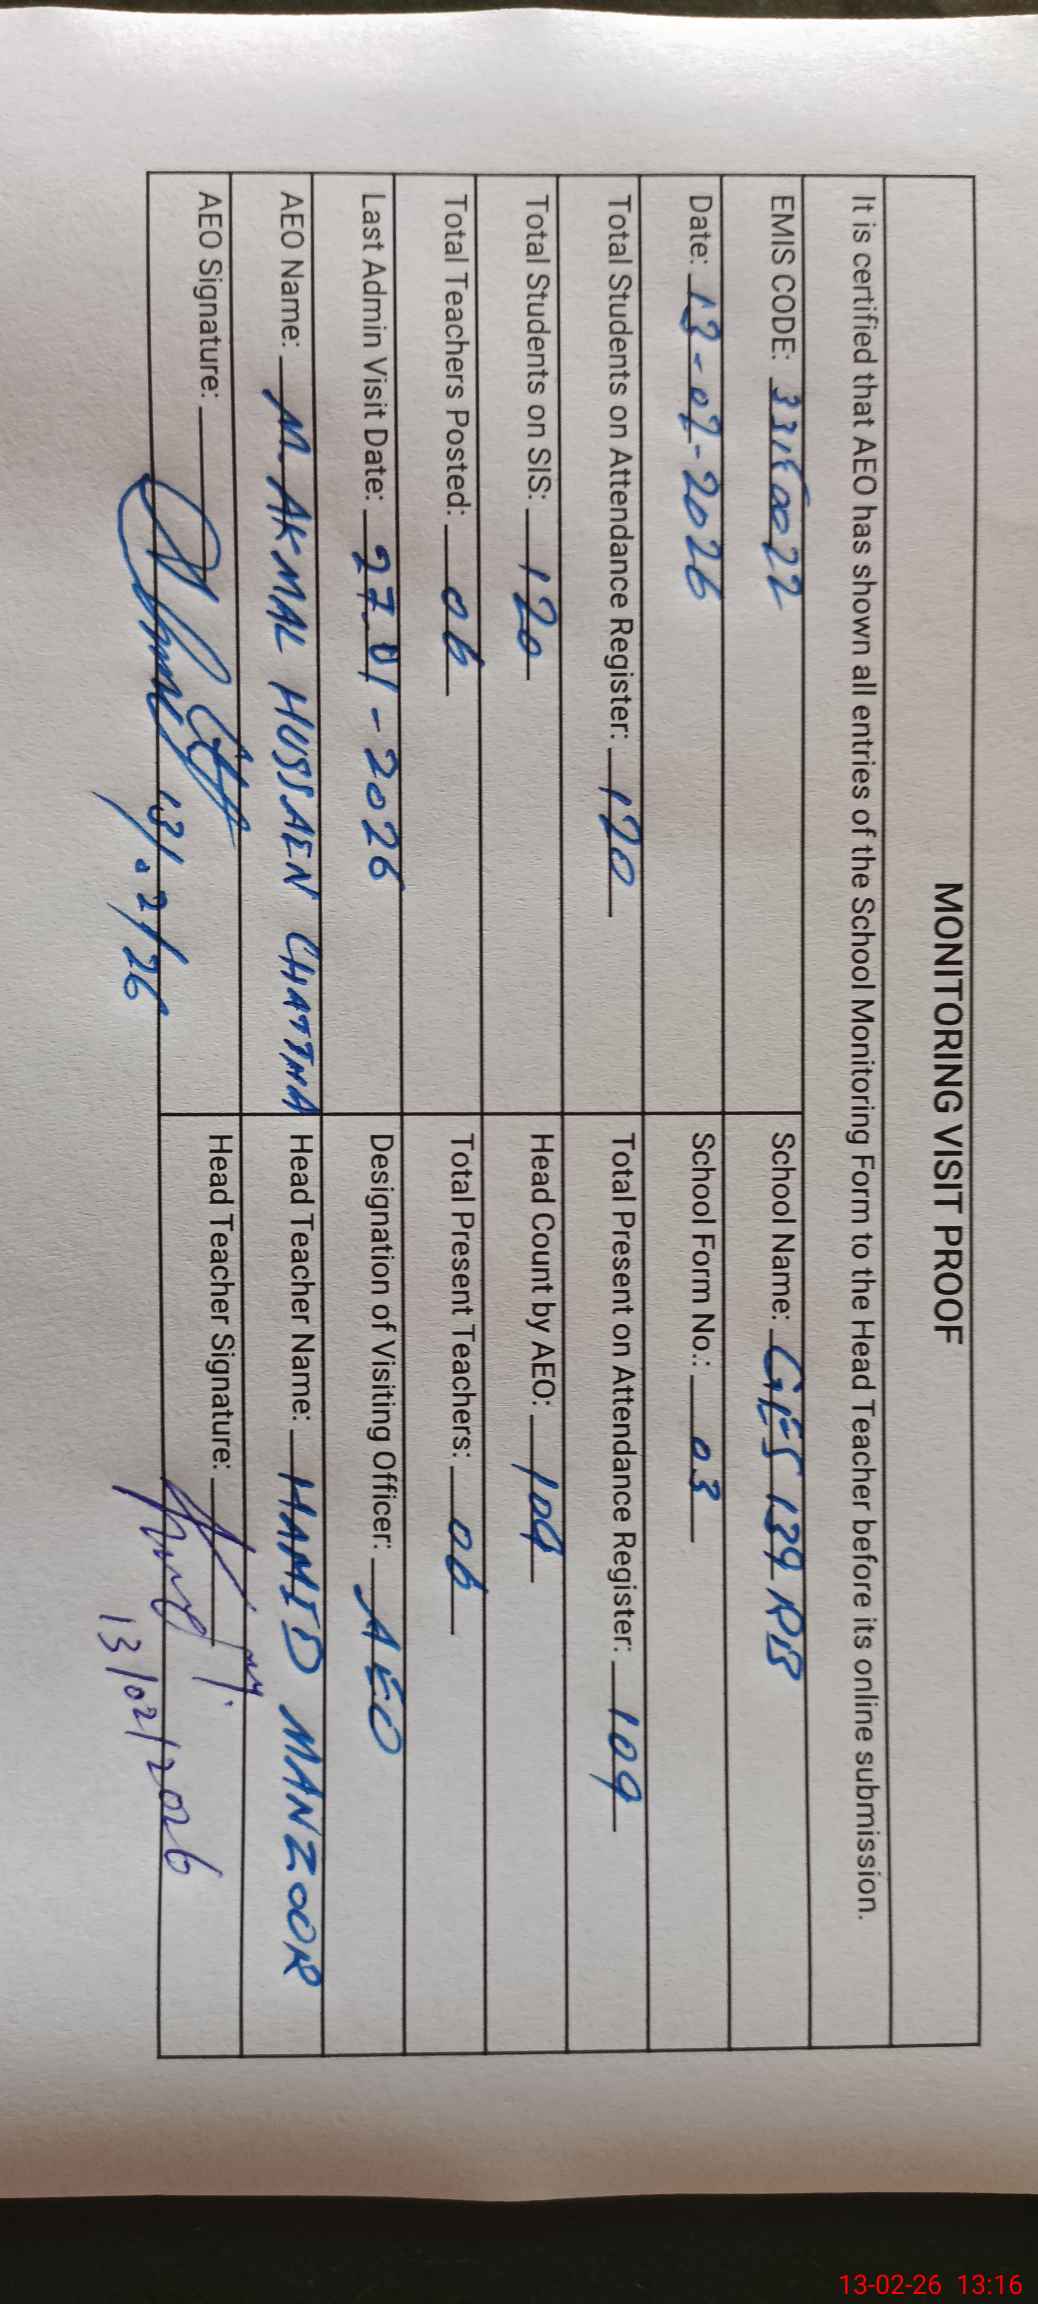 MONITORING VISIT PROOF
It is certified that AEO has shown all entries of the School Monitoring Form to the Head Teacher before its online submission.
EMIS CODE: 33150022 School Name: GES 139 RB
Date: 13-02-2026 School Form No.: 03
Total Students on Attendance Register: 120 Total Present on Attendance Register: 109
Total Students on SIS: 120 Head Count by AEO: 109
Total Teachers Posted: 06 Total Present Teachers: 06
Last Admin Visit Date: 27-01-2026 Designation of Visiting Officer: AEO
AEO Name: M. AKMAL HUSSAEN CHATTHA Head Teacher Name: HAMID MANZOOR
AEO Signature: Head Teacher Signature:
13/.2/26 13/02/2026
13-02-26 13:16